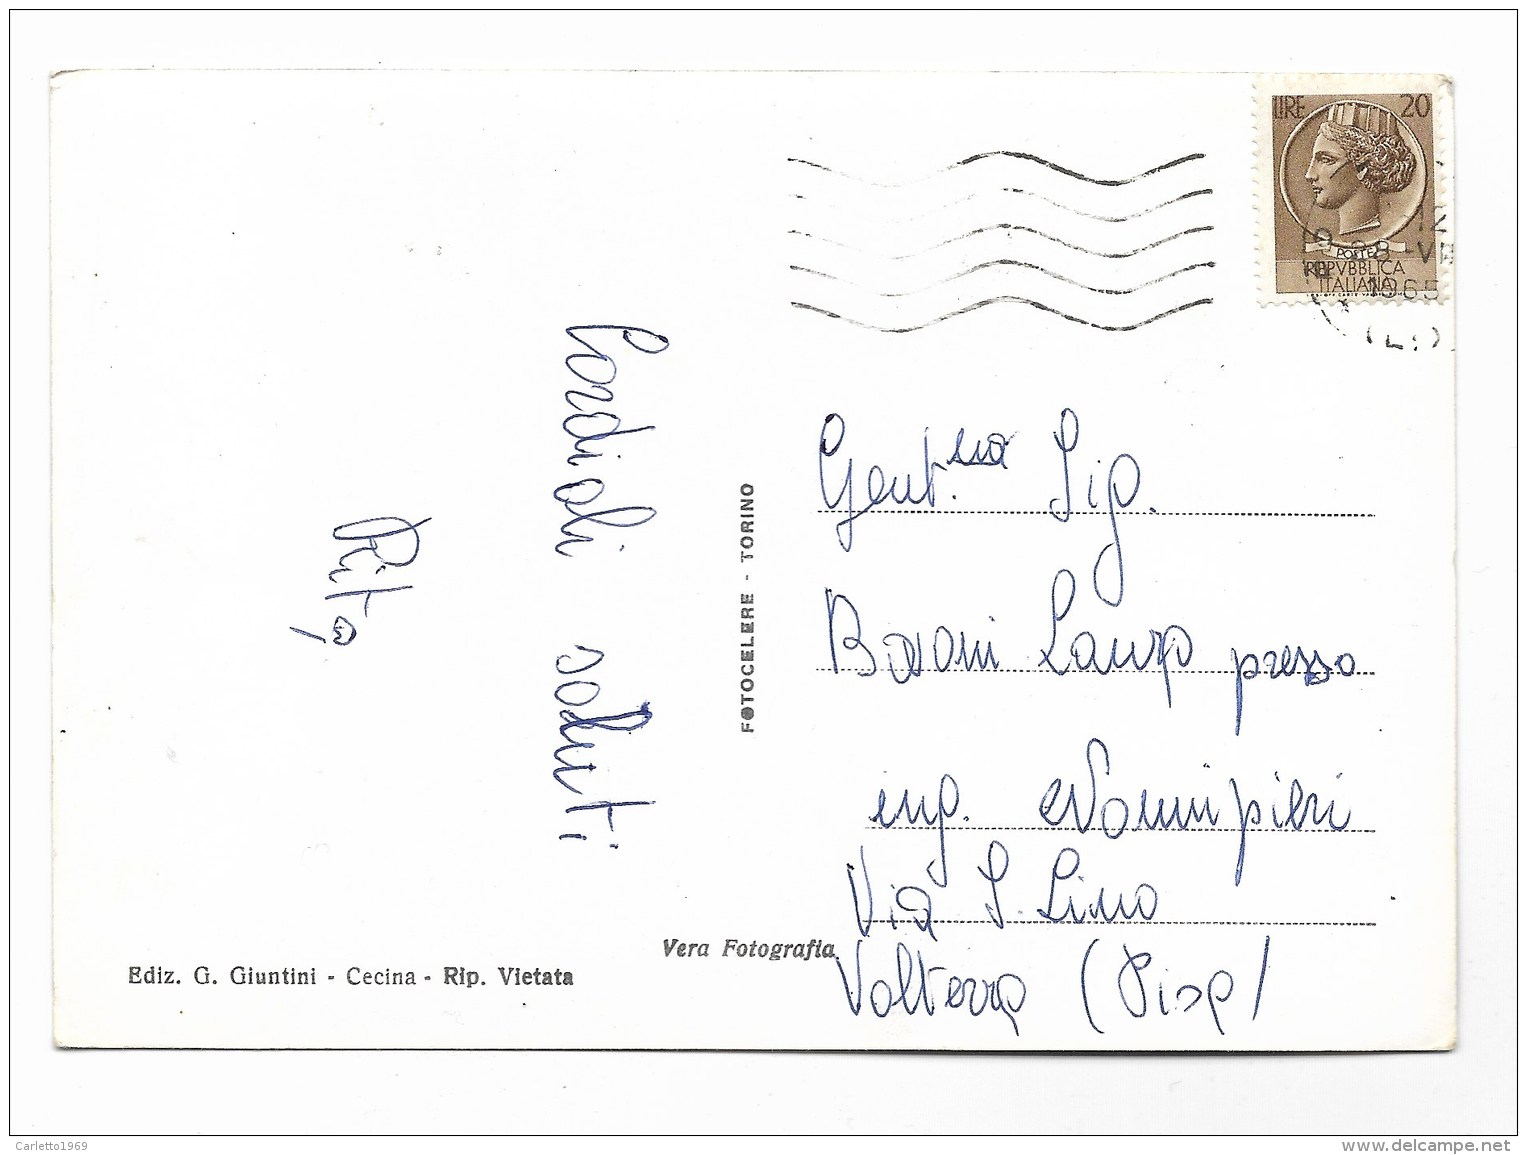 LIRE 20
POSTE
REPVBBLICA
ITALIANA
12
28 - VI
1965
(LI)
Cordiali saluti
Rita
FOTOCELERE - TORINO
Gent.ma Sig.
Baroni Laura presso
ing.
Via S. Lino
Volterra (Pisa)
Vera Fotografia
Ediz. G. Giuntini - Cecina - Rip. Vietata
Carletto1969
www.delcampe.net